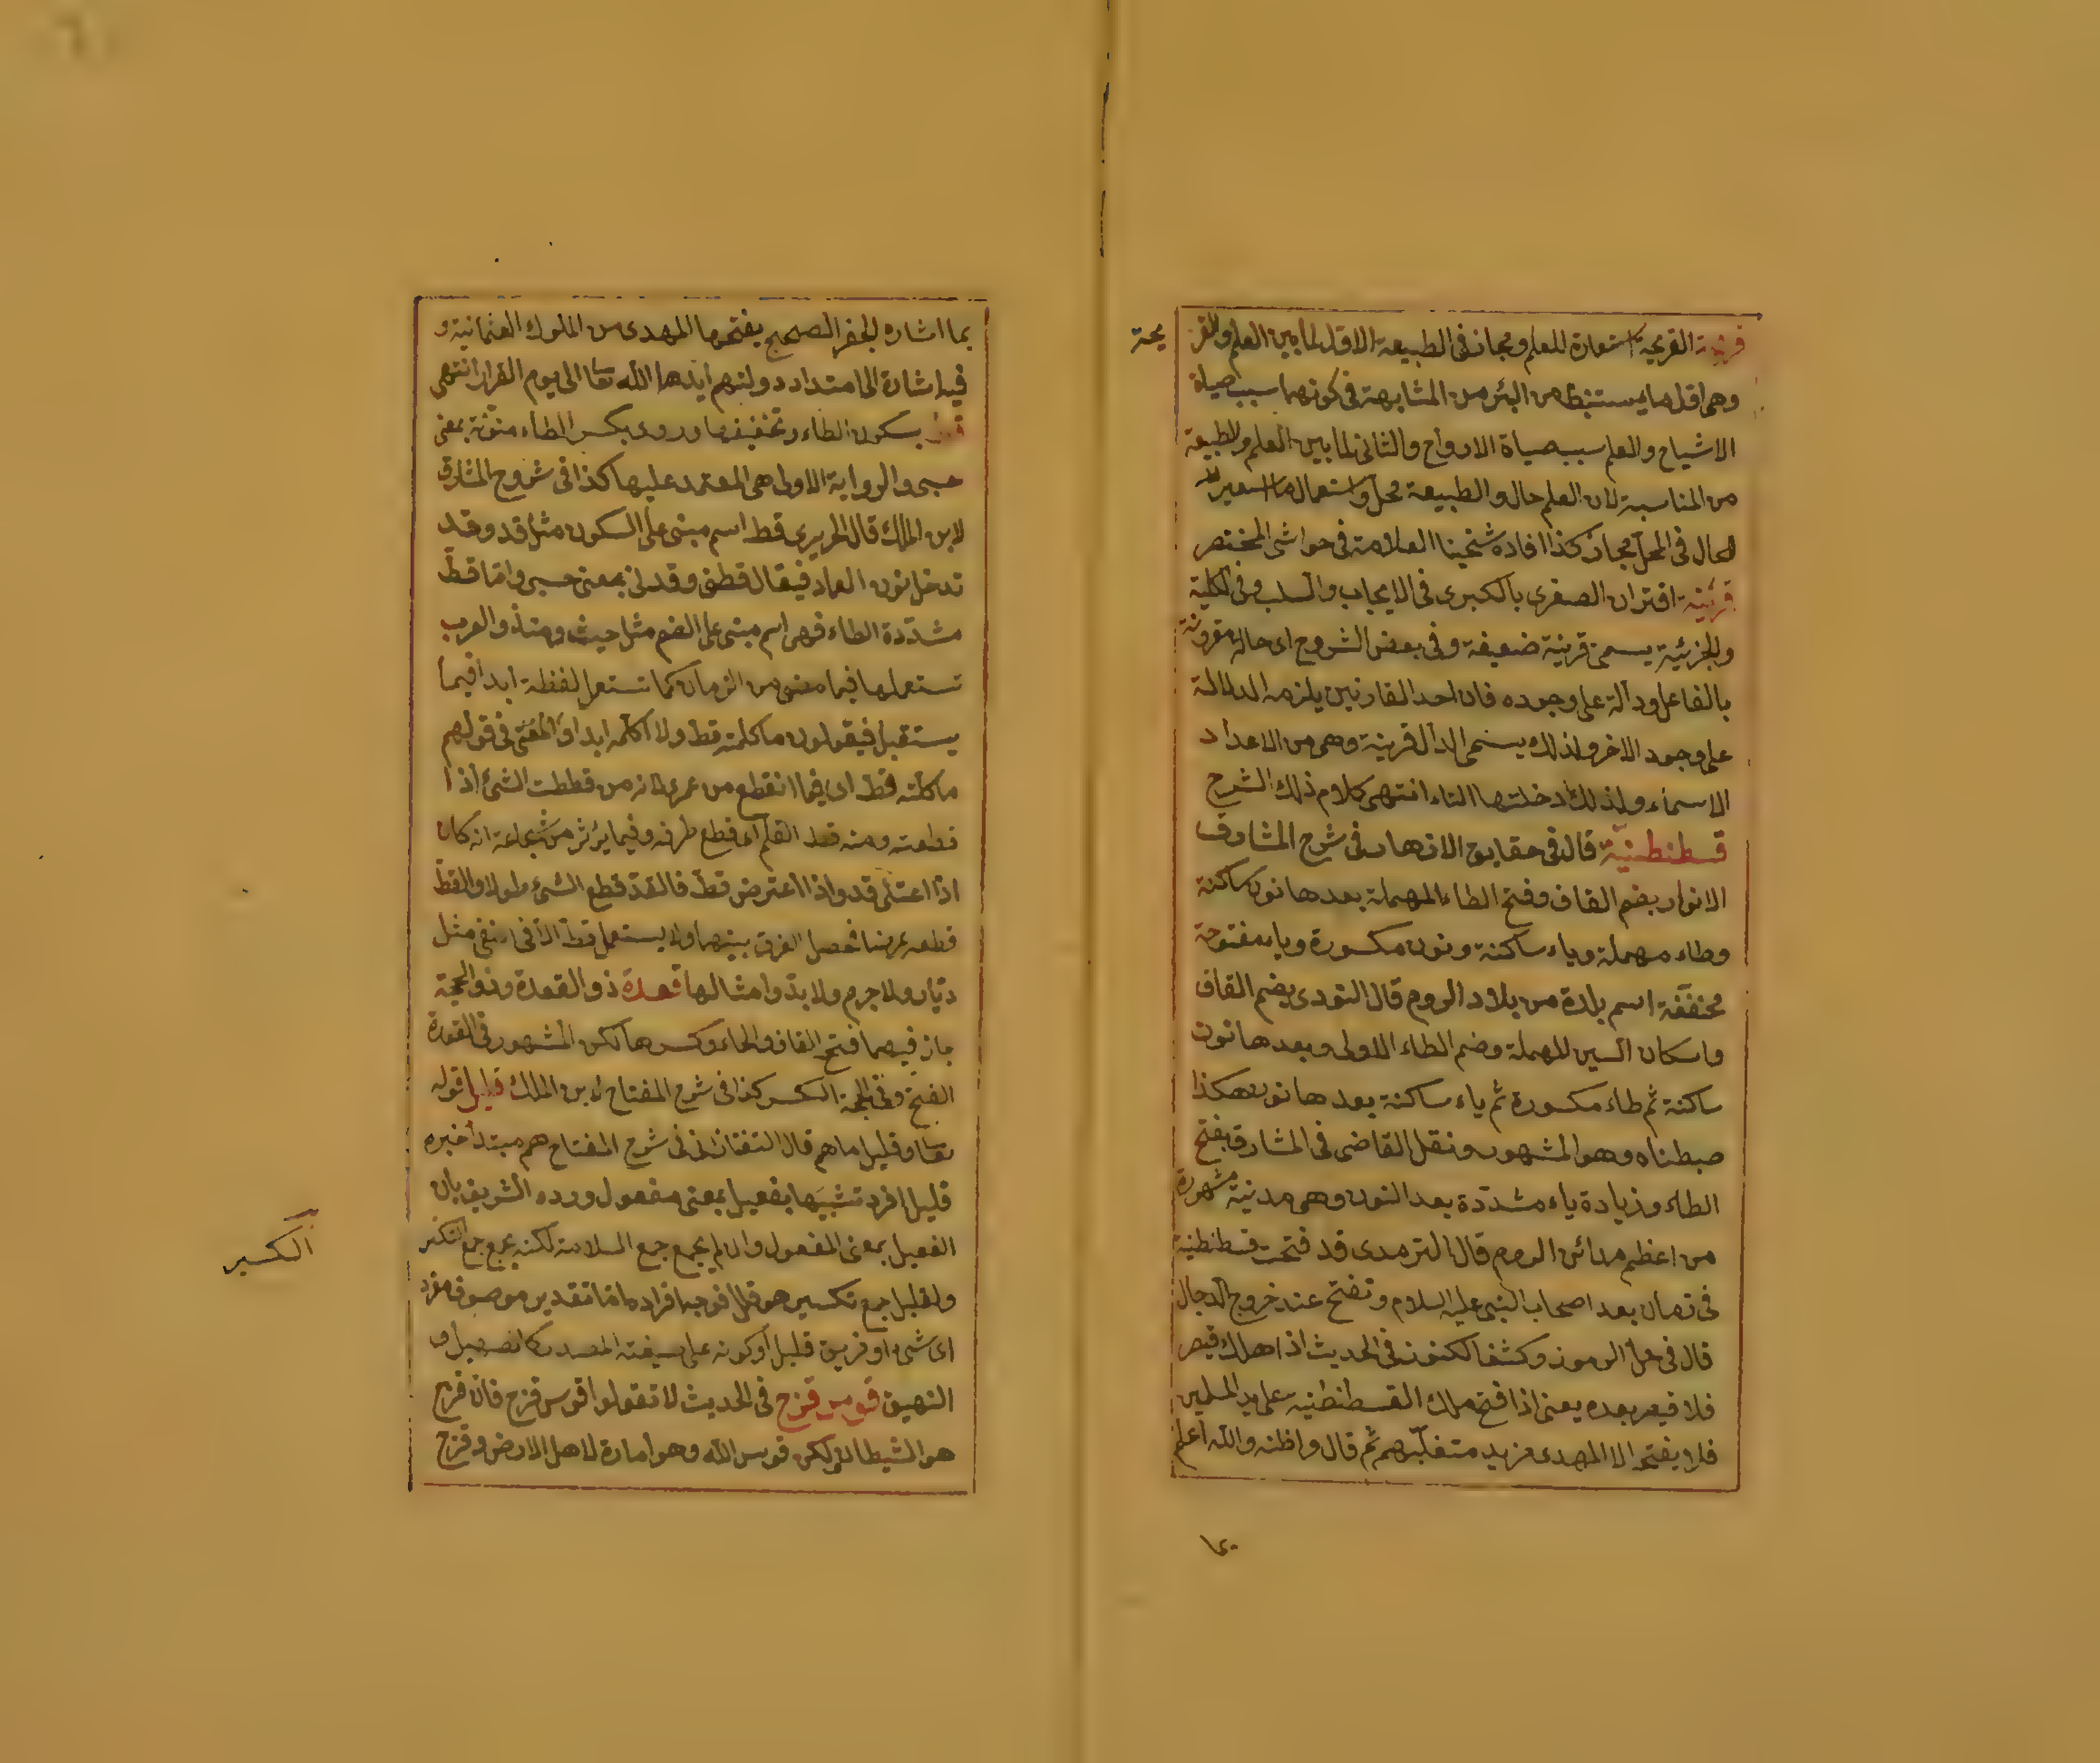 قرينة القريحة استعارة للعلم ومجاز فى الطبيعة الاول لما بين العلم والقر
يحة
وهى اول ما يستنبط من البئر من المشابهة فى كونهما سبب حياة
الاشباح والعلم سبب حياة الارواح والثانى لما بين العلم والطبيعة
من المناسبة لان العلم حال والطبيعة محل واستعمال ما
الحال فى المحل مجاز كذا افاده شيخنا العلامة فى حواشى المختصر
قرينة اقتران الصغرى بالكبرى فى الايجاب والسلب وفى الكلية
والجزئية يسمى قرينة ضعيفة وفى بعض الشروح اى حالة مقرونة
بالفاعل ودالة على وجوده فان احد القارنين يلزمه الدلالة
على وجود الاخر ولذلك يسمى الدال قرينة وهى من الاعداد
الاسماء ولذلك ادخلتها التاء انتهى كلام ذلك الشرح
قسطنطينية قال فى حقايق الازهار فى شرح المشارق
الانوار بضم القاف وفتح الطاء المهملة بعدها نون ساكنة
وطاء مهملة وياء ساكنة ونون مكسورة وياء مفتوحة
مخففة اسم بلدة من بلاد الروم قال النووى بضم القاف
واسكان السين المهملة وضم الطاء الاولى وبعدها نون
ساكنة ثم طاء مكسورة ثم ياء ساكنة بعدها نون هكذا
ضبطناه وهو المشهور ونقل القاضى فى المشارق بفتح
الطاء وزيادة ياء مشددة بعد النون وهى مدينة مشهورة
من اعظم مدائن الروم قال الترمدى قد فتحت قسطنطنية
فى زمان بعد اصحاب النبى عليه السلام وتفتح عند خروج الدجال
قال فى حل الرموز وكشف الكنوز فى الحديث اذا هلك قيصر
فلا قيصر بعده يعنى اذا فتح ملك القسطنطنية على يد المسلمين
فلا يفتح الا المهدى من يد متغلبهم ثم قال واظنه والله اعلم
بما
بما اشاره الجفر الصحيح يفتحها المهدى من الملوك العثمانية و
فيه اشارة الى امتداد دولتهم ايدها الله تعا الى يوم القرار انتهى
قط بسكون الطاء وتخفيفها وروى بكسر الطاء منونة بمعنى
حسبى والرواية الاولى هى المعتمد عليها كذا فى شروح المشارق
لابن الملك قال الحريرى قط اسم مبنى على السكون مثل قد وقد
تدخل نون العماد فيقال قطنى وقدنى بمعنى حسبى واما قط
مشددة الطاء فهى اسم مبنى على الضم مثل حيث ومنذ والعرب
تستعملها فيما مضى من الزمان كما تستعمل لفظة ابدا فيما
يستقبل فيقولون ما كلمته قط ولا اكلمه ابدا والمعنى فى قولهم
ما كلمته قط اى فيما انقطع من عمرى لانه من قططت الشئ اذا
قطعته ومنه قط القلم اى قطع طرفه وفيما يؤثر من شجاعة انه كان
اذا اعتلى قد واذا اعترض قط فالقد قطع الشئ طولا والقط
قطعه عرضا فحصل الفرق بينهما ولا يستعمل قط الا فى النفى مثل
ديار ولا جرم ولا بد وامثالها قعدة ذو القعدة وذو الحجة
جاز فيهما فتح القاف والحاء وكسرها لكن المشهور فى القعدة
الفتح وفى الحجة الكسر كذا فى شرح المفتاح لابن الملك قليل قوله
تعا وقليل ما هم قال التفتازانى فى شرح المفتاح هم مبتدأ خبره
قليل افرد تشبيها بفعيل بمعنى مفعول ورده الشريف بان
الفعيل بمعنى المفعول وان لم يجمع جمع السلامة لكنه يجمع جمع التكسر
الكسير
ولقليل جمع تكسير هو قلل فوجه افراده اما تقدير موصوف مفرد
اى شئ او فريق قليل او كونه على صيغة المصدر كالصهيل و
النهيق قوس قزح فى الحديث لا تقولوا قوس قزح فان قزح
هو الشيطان ولكن قوس الله وهو امارة لاهل الارض وقزح